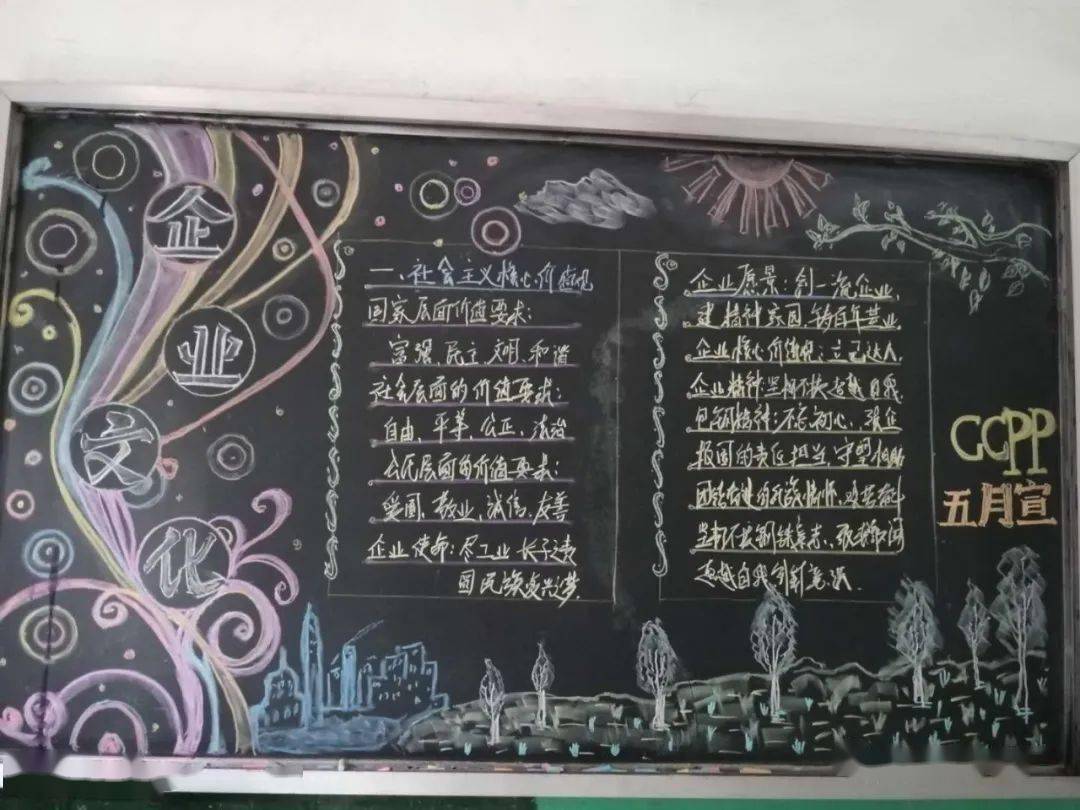 企业文化
一、社会主义核心价值观
国家层面价值要求:
富强、民主、文明、和谐
社会层面的价值要求:
自由、平等、公正、法治
公民层面的价值要求:
爱国、敬业、诚信、友善
企业使命:尽工业长子责
圆民族复兴梦.
企业愿景:创一流企业,
建精神家园、铸百年基业
企业核心价值观:立己达人,
企业精神:坚韧不拔超越自我
包钢精神:不忘初心、强企
报国的责任担当,守望相助
团结奋进的民族情怀,艰苦奋斗
坚韧不拔钢铁意志,
超越自我创新意识.
CCPP
五月宣